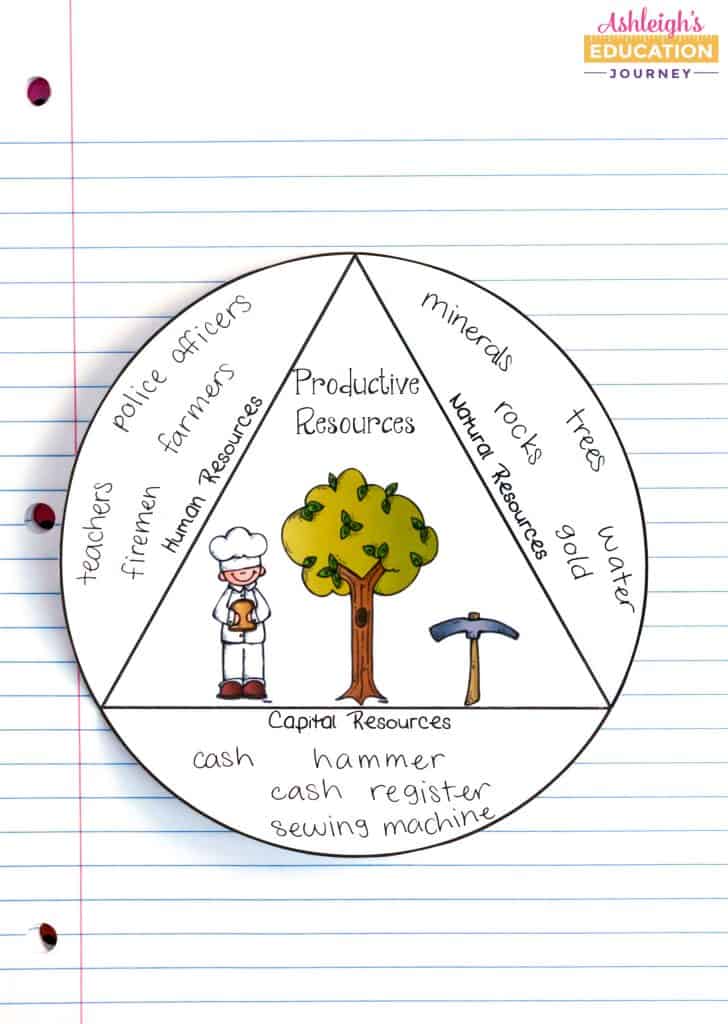 Ashleigh's
EDUCATION
JOURNEY
Productive
Resources
police officers
farmers
teachers
firemen
Human Resources
minerals
rocks
trees
Natural Resources
gold
water
Capital Resources
cash hammer
cash register
sewing machine